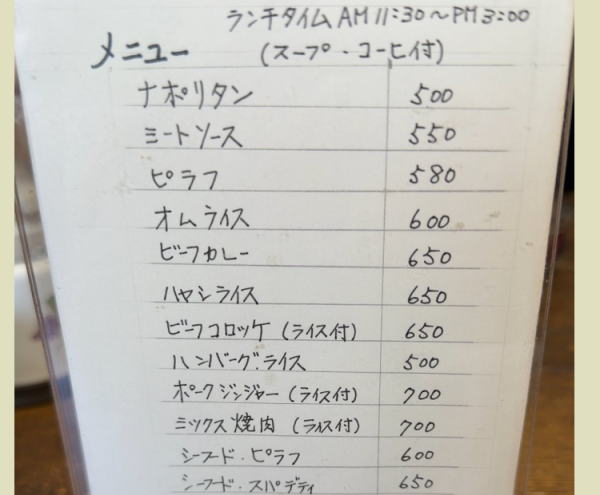 ランチタイム AM 11:30〜PM 3:00
メニュー (スープ・コーヒ付)
ナポリタン 500
ミートソース 550
ピラフ 580
オムライス 600
ビーフカレー 650
ハヤシライス 650
ビーフコロッケ (ライス付) 650
ハンバーグ.ライス 500
ポークジンジャー (ライス付) 700
ミックス焼肉 (ライス付) 700
シーフード.ピラフ 600
シーフード.スパゲティ 650